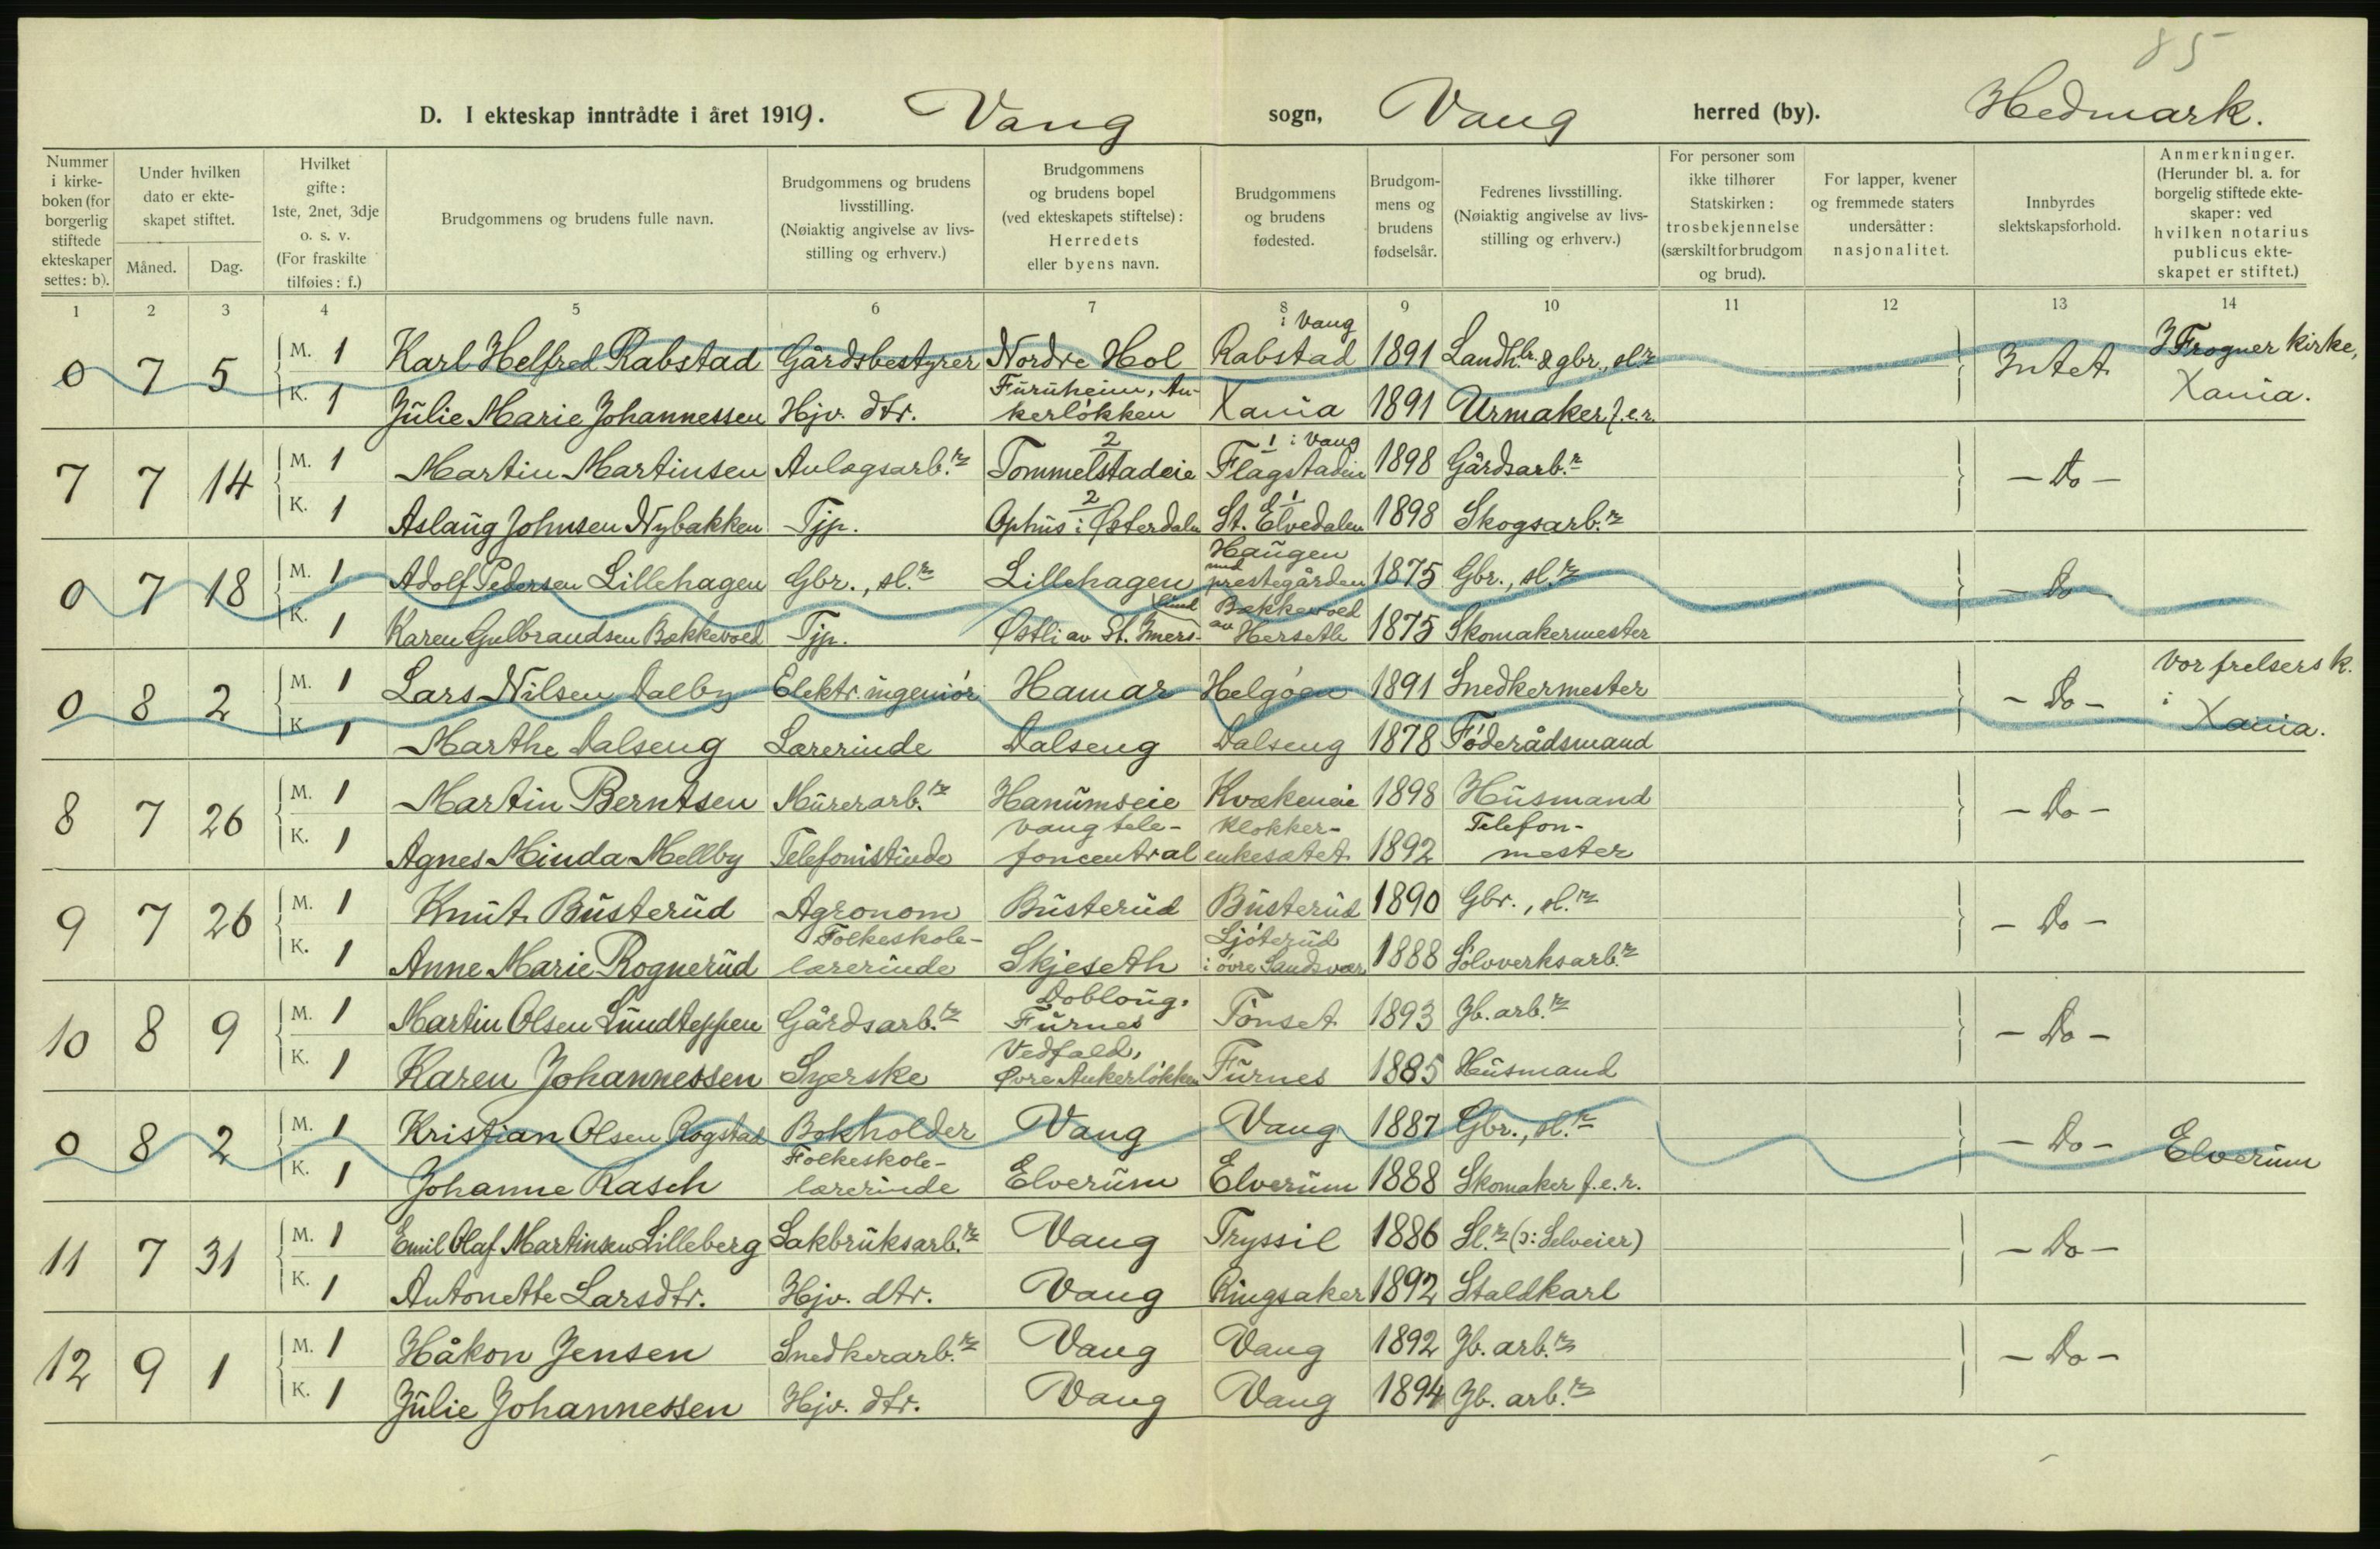 85
D. I ekteskap inntrådte i året 1919. Vang sogn, Vang herred (by). Hedmark.
Nummer i kirkeboken (for borgerlig stiftede ekteskaper settes: b).
Under hvilken dato er ekteskapet stiftet.
Måned.
Dag.
Hvilket gifte: 1ste, 2net, 3dje o. s. v. (For fraskilte tilføies: f.)
Brudgommens og brudens fulle navn.
Brudgommens og brudens livsstilling. (Nøiaktig angivelse av livsstilling og erhverv.)
Brudgommens og brudens bopel (ved ekteskapets stiftelse): Herredets eller byens navn.
Brudgommens og brudens fødested.
Brudgommens og brudens fødselsår.
Fedrenes livsstilling. (Nøiaktig angivelse av livsstilling og erhverv.)
For personer som ikke tilhører Statskirken: trosbekjennelse (særskilt for brudgom og brud).
For lapper, kvener og fremmede staters undersåtter: nasjonalitet.
Innbyrdes slektskapsforhold.
Anmerkninger. (Herunder bl. a. for borgelig stiftede ekteskaper: ved hvilken notarius publicus ekteskapet er stiftet.)
1 2 3 4 5 6 7 8 9 10 11 12 13 14
0 7 5 M. 1 Karl Helfred Rabstad Gårdsbestyrer Nordre Hol Rabstad i Vang 1891 Landh. & gbr., sl.r Intet I Frogner kirke, Xania.
K. 1 Julie Marie Johannessen Hjv. dtr. Furuheim, Ankerløkken Xania 1891 Urmaker f.e.r.
7 7 14 M. 1 Martin Martinsen Anlægsarb.r Tommelstadeie 2 Flagstadeie 1 i Vang 1898 Gårdsarb.r - Do -
K. 1 Aslaug Johnsen Nybakken Tjp. Ophus i Østerdalen 2 St. Elvedalen 1 1898 Skogsarb.r
0 7 18 M. 1 Adolf Pedersen Lillehagen Gbr., sl.r Lillehagen Haugen und prestegården 1875 Gbr., sl.r - Do -
K. 1 Karen Gulbrandsen Bækkevold Tjp. Østli av St. Imerslund Bækkevold av Herseth 1875 Skomakermester
0 8 2 M. 1 Lars Nilsen Dalby Elektr. ingeniør Hamar Helgøen 1891 Snedkermester - Do - Vor frelsers k. i Xania.
K. 1 Marthe Dalseng Lærerinde Dalseng Dalseng 1878 Føderådsmand
8 7 26 M. 1 Martin Berntsen Murerarb.r Hanumseie Kvækeneie 1898 Husmand - Do -
K. 1 Agnes Minda Mellby Telefonistinde Vang telefoncentral Klokkerenkesætet 1892 Telefonmester
9 7 26 M. 1 Knut Busterud Agronom Busterud Busterud 1890 Gbr., sl.r - Do -
K. 1 Anne Marie Rognerud Folkeskolelærerinde Skjeseth Ljøterud i øvre Sandsvær 1888 Sølvverksarb.r
10 8 9 M. 1 Martin Olsen Lundteppen Gårdsarb.r Dobloug, Furnes Tønset 1893 Jb. arb.r - Do -
K. 1 Karen Johannessen Syerske Vedfald, Øvre Ankerløkken Furnes 1885 Husmand
0 8 2 M. 1 Kristian Olsen Rogstad Bokholder Vang Vang 1887 Gbr., sl.r - Do - Elverum
K. 1 Johanne Rasch Folkeskolelærerinde Elverum Elverum 1888 Skomaker f.e.r.
11 7 31 M. 1 Emil Olaf Martinsen Lilleberg Sakbruksarb.r Vang Tryssil 1886 Sl.r (ɔ: Selveier) - Do -
K. 1 Antonette Larsdtr. Hjv. dtr. Vang Ringsaker 1892 Staldkarl
12 9 1 M. 1 Håkon Jensen Snedkerarb.r Vang Vang 1892 Jb. arb.r - Do -
K. 1 Julie Johannessen Hjv. dtr. Vang Vang 1894 Jb. arb.r